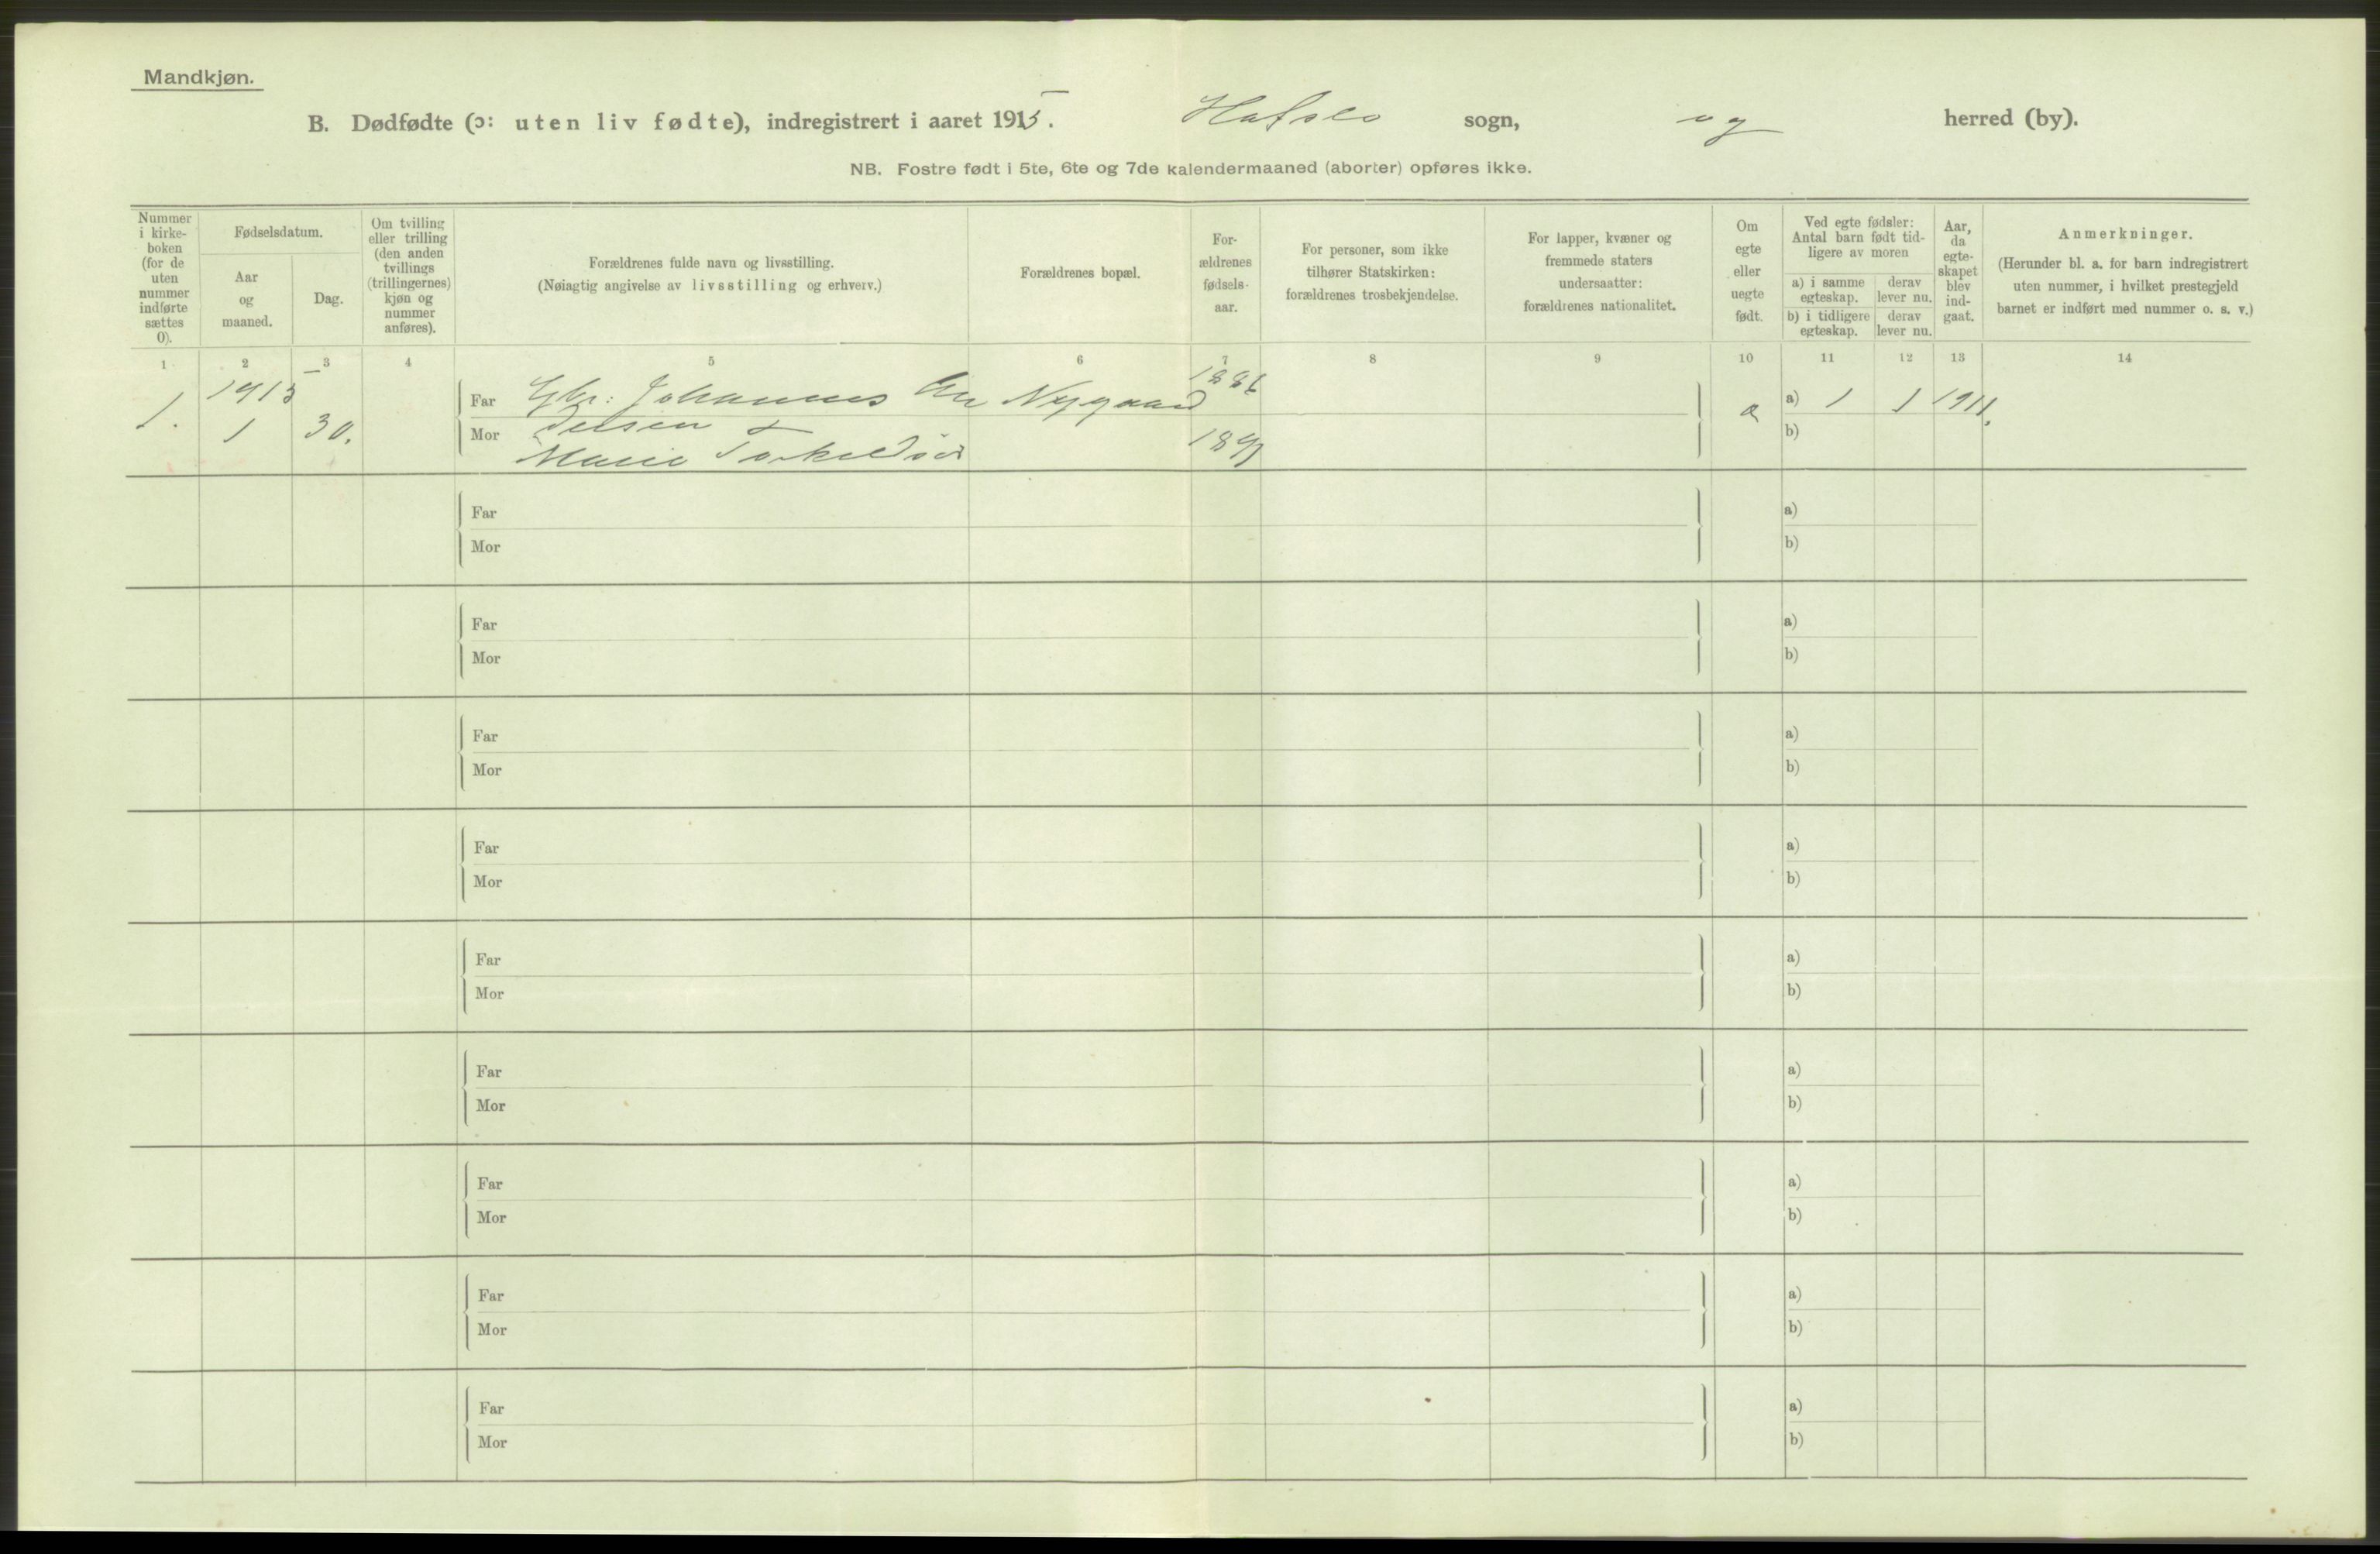 Mandkjøn.
B. Dødfødte (ɔ: uten liv fødte), indregistrert i aaret 1915. Hafslo sogn, og herred (by).
NB. Fostre født i 5te, 6te og 7de kalendermaaned (aborter) opføres ikke.
Nummer i kirke-boken (for de uten nummer indførte sættes 0).
Fødselsdatum.
Aar og maaned.
Dag.
Om tvilling eller trilling (den anden tvillings (trillingernes) kjøn og nummer anføres).
Forældrenes fulde navn og livsstilling.
(Nøiagtig angivelse av livsstilling og erhverv.)
Forældrenes bopæl.
For-ældrenes fødsels-aar.
For personer, som ikke tilhører Statskirken: forældrenes trosbekjendelse.
For lapper, kvæner og fremmede staters undersaatter: forældrenes nationalitet.
Om egte eller uegte født.
Ved egte fødsler: Antal barn født tid-ligere av moren
a) i samme egteskap.
derav lever nu.
b) i tidligere egteskap.
derav lever nu.
Aar, da egte-skapet blev ind-gaat.
Anmerkninger.
(Herunder bl. a. for barn indregistrert uten nummer, i hvilket prestegjeld barnet er indført med nummer o. s. v.)
1 2 3 4 5 6 7 8 9 10 11 12 13 14
1. 1915 1 30.
Far Gbr. Johannes An Nygaard 1886 a) 1 1 1911.
dersen
Mor Marie Torkelsd b)
Far a)
Mor b)
Far a)
Mor b)
Far a)
Mor b)
Far a)
Mor b)
Far a)
Mor b)
Far a)
Mor b)
Far a)
Mor b)
Far a)
Mor b)
Far a)
Mor b)